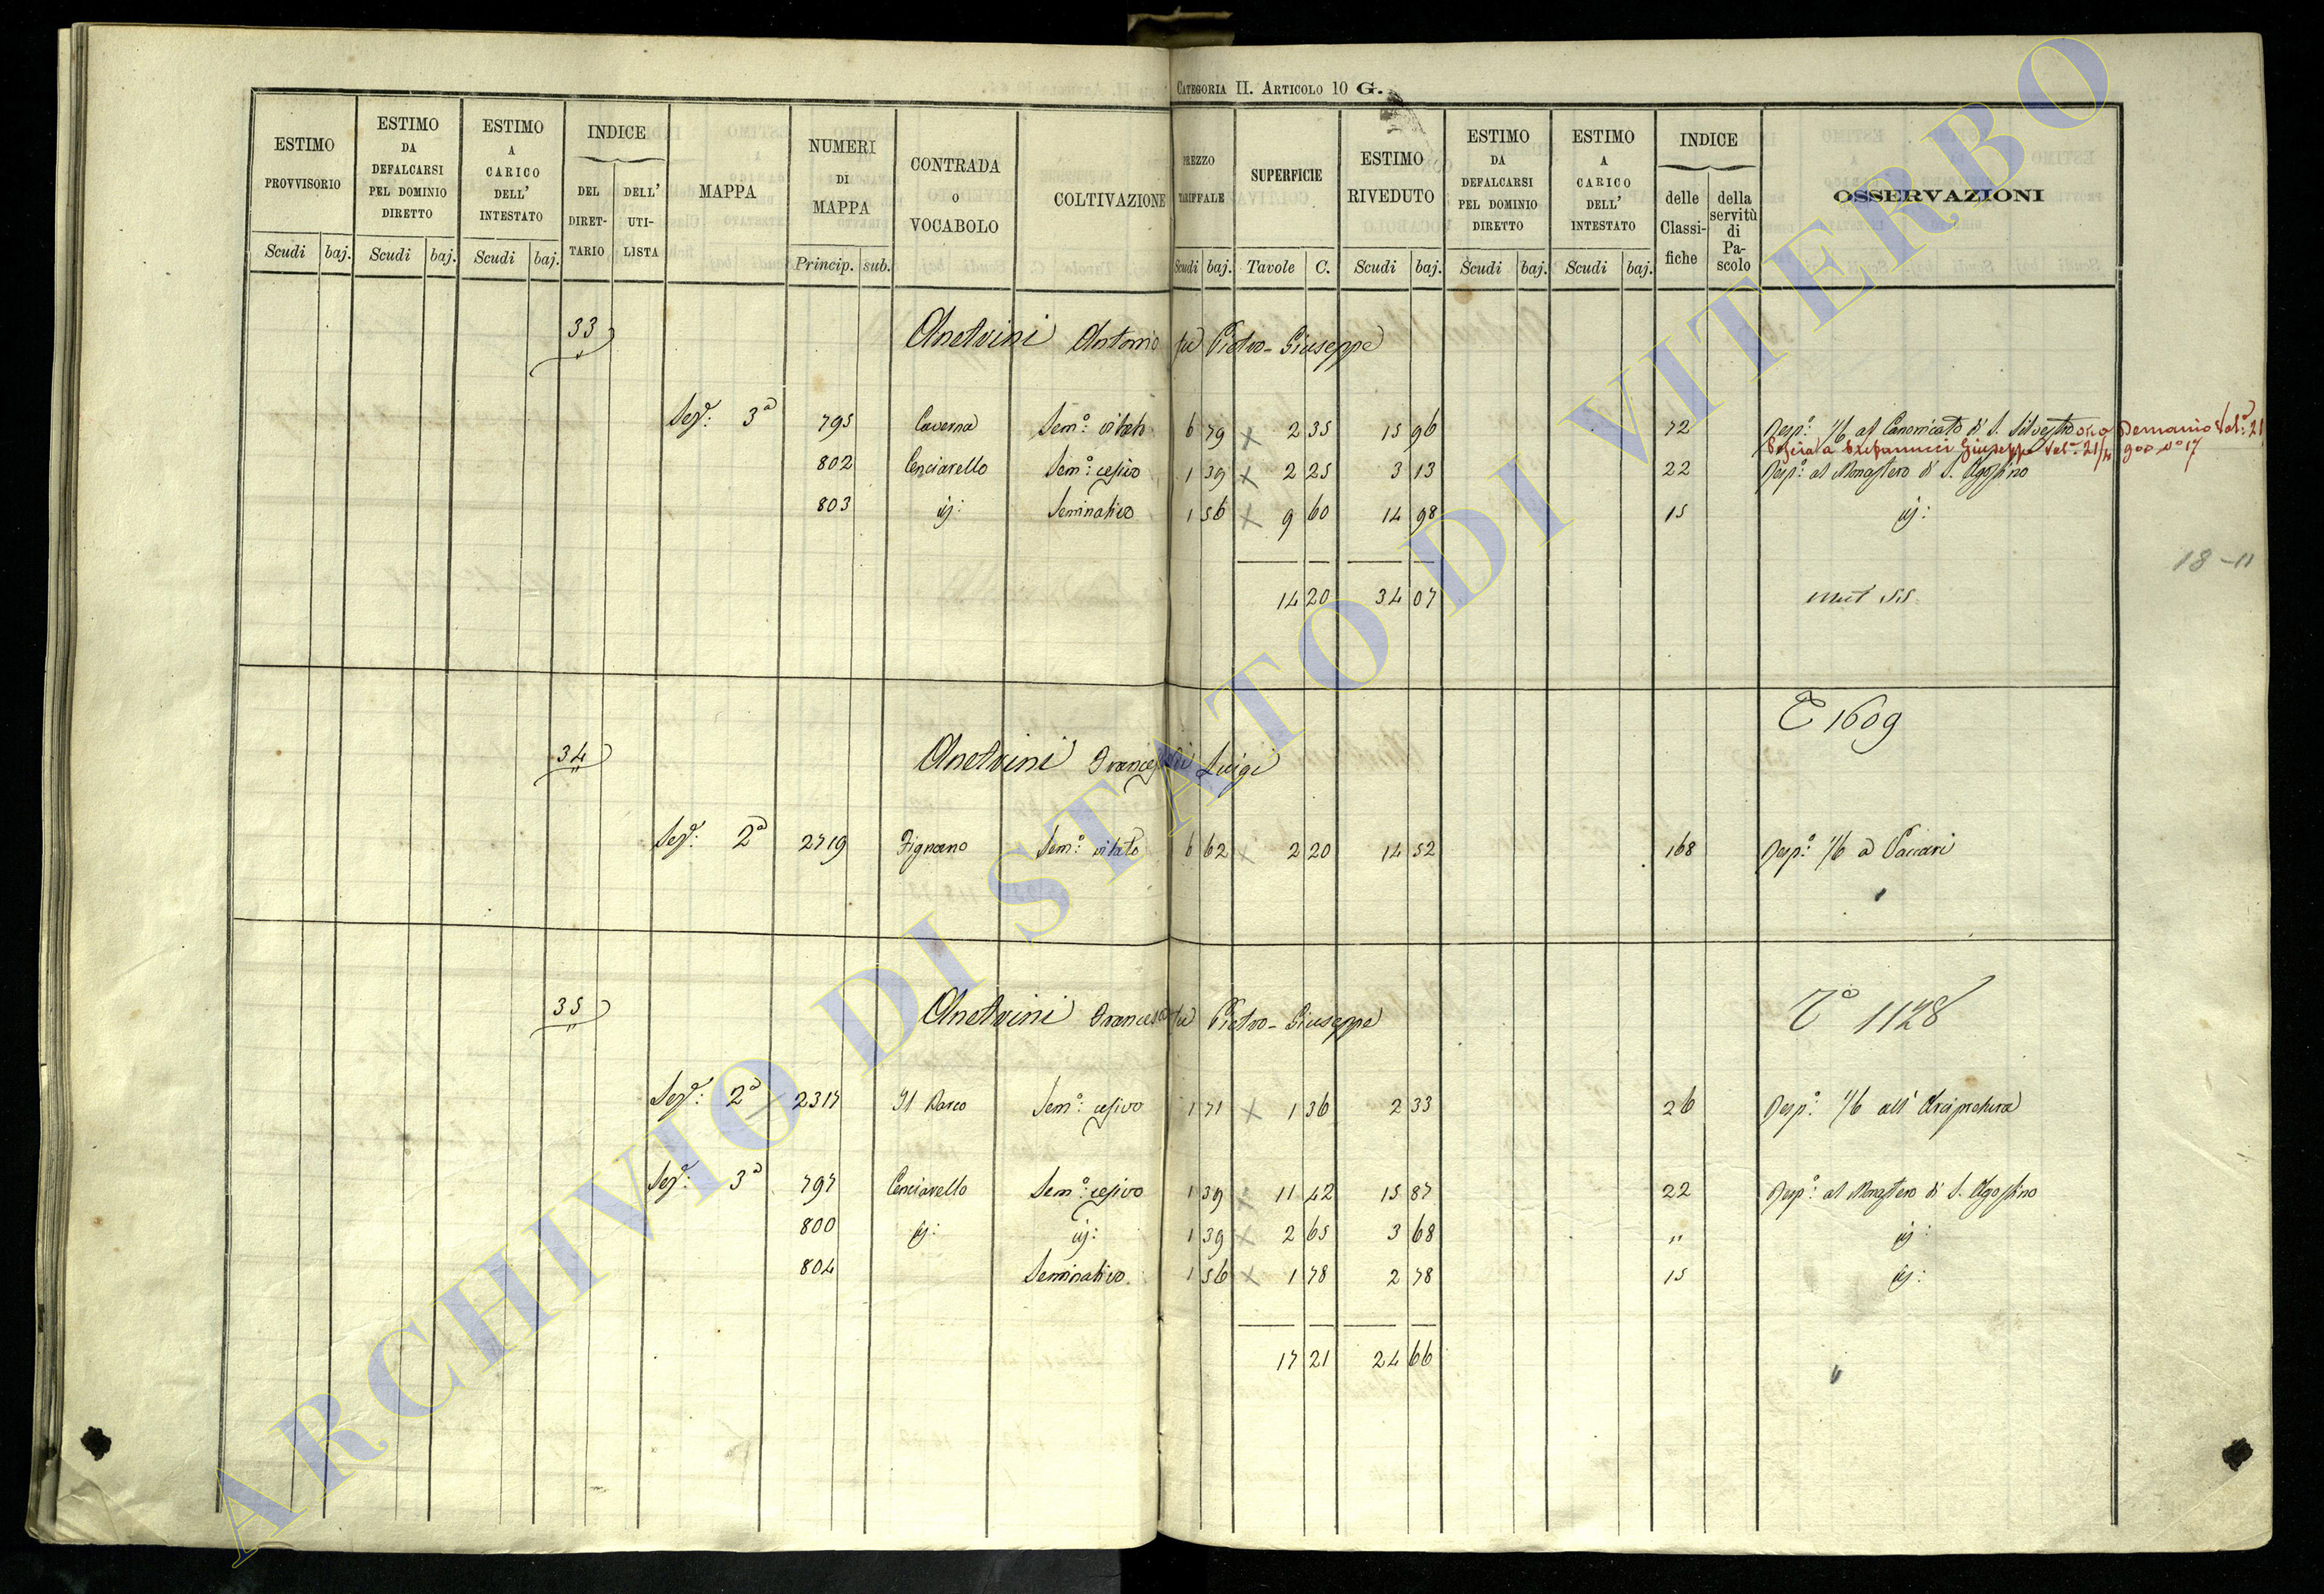 CATEGORIA II. ARTICOLO 10 G.
ESTIMO PROVVISORIO
ESTIMO DA DEFALCARSI PEL DOMINIO DIRETTO
ESTIMO A CARICO DELL' INTESTATO
INDICE
DEL DIRETTARIO
DELL' UTILISTA
MAPPA
NUMERI DI MAPPA
CONTRADA o VOCABOLO
COLTIVAZIONE
PREZZO TARIFFALE
SUPERFICIE
ESTIMO RIVEDUTO
ESTIMO DA DEFALCARSI PEL DOMINIO DIRETTO
ESTIMO A CARICO DELL' INTESTATO
INDICE
delle Classifiche
della servitù di Pascolo
OSSERVAZIONI
Scudi baj. Scudi baj. Scudi baj. Princip. sub. Scudi baj. Tavole C. Scudi baj. Scudi baj. Scudi baj.
33 Anetrini Antonio fu Pietro-Giuseppe
Sez.e: 3a 795 Caverna Sem.o: 6 79 2 35 15 96 72 Resp.o: 1/6 al Canonicato di S. Silvestro ora Demanio Vol.o 21
Poscia a Stefanucci Giuseppe Vol. 21/4
802 Cenciarello Sem.o: cesivo 1 39 2 25 3 13 22 Resp.o: al Monastero di S. Agostino
803 ij: Seminativo 1 56 9 60 14 98 15 ij:
18-11
14 20 34 07
T 1609
34 Anetrini Francesco di Luigi
Sez.e: 2a 2719 Fignano Sem.o: vitato 6 62 2 20 14 52 168 Resp.o: 1/6 a Vaccari
35 Anetrini Francesco fu Pietro-Giuseppe
To 1128
Sez.e: 2a 2317 Il Parco Sem.o: cesivo 1 71 1 36 2 33 26 Resp.o: 1/6 all' Arcipretura
Sez.e: 3a 797 Cenciarello Sem.o: cesivo 1 39 11 42 15 87 22 Resp.o: al Monastero di S. Agostino
800 ij: ij: 1 39 2 65 3 68 " ij:
804 Seminativo 1 56 1 78 2 78 15 ij:
17 21 24 66
ARCHIVIO DI STATO DI VITERBO